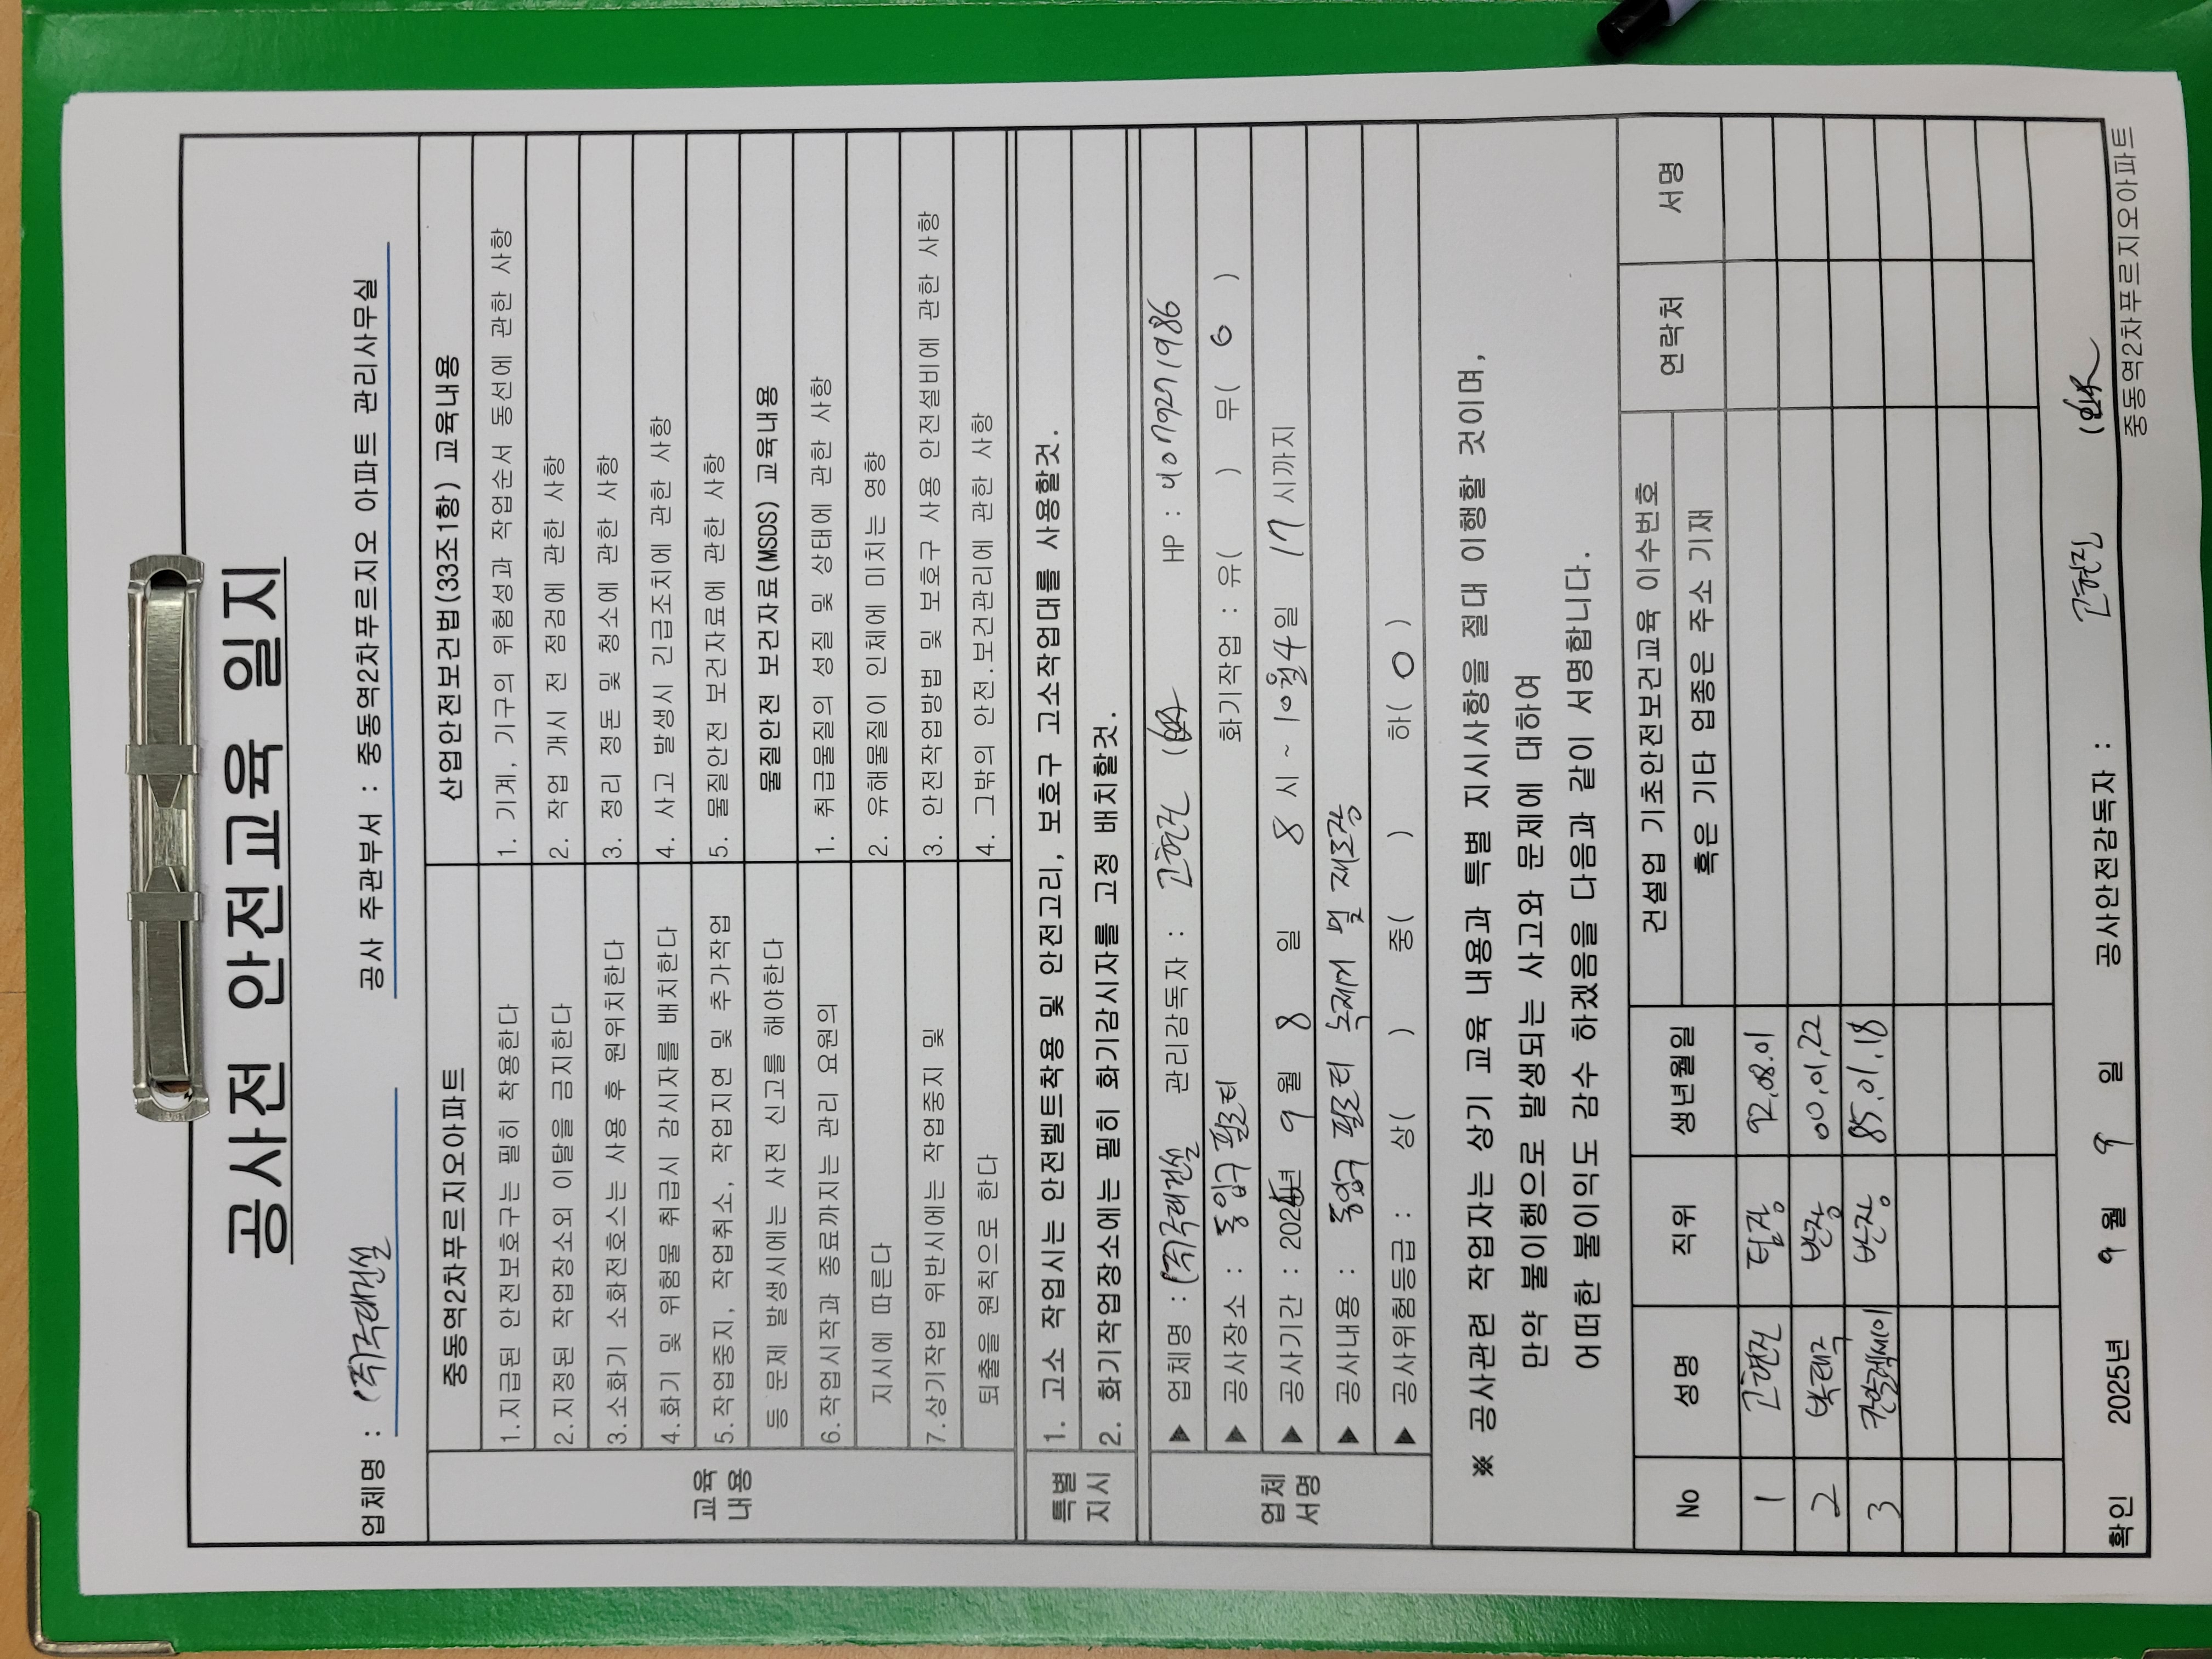 공사전 안전교육 일지
업체명 : (주)국태건설 공사 주관부서 : 중동역2차푸르지오 아파트 관리사무실
교육 내용
중동역2차푸르지오아파트
1.지급된 안전보호구는 필히 착용한다
2.지정된 작업장소외 이탈을 금지한다
3.소화기 소화전호스는 사용 후 원위치한다
4.화기 및 위험물 취급시 감시자를 배치한다
5.작업중지, 작업취소, 작업지연 및 추가작업
등 문제 발생시에는 사전 신고를 해야한다
6.작업시작과 종료까지는 관리 요원의
지시에 따른다
7.상기작업 위반시에는 작업중지 및
퇴출을 원칙으로 한다
산업안전보건법(33조1항) 교육내용
1. 기계, 기구의 위험성과 작업순서 동선에 관한 사항
2. 작업 개시 전 점검에 관한 사항
3. 정리 정돈 및 청소에 관한 사항
4. 사고 발생시 긴급조치에 관한 사항
5. 물질안전 보건자료에 관한 사항
물질안전 보건자료(MSDS) 교육내용
1. 취급물질의 성질 및 상태에 관한 사항
2. 유해물질이 인체에 미치는 영향
3. 안전작업방법 및 보호구 사용 안전설비에 관한 사항
4. 그밖의 안전.보건관리에 관한 사항
특별 지시
1. 고소 작업시는 안전벨트착용 및 안전고리, 보호구 고소작업대를 사용할것.
2. 화기작업장소에는 필히 화기감시자를 고정 배치할것.
업체 서명
▶ 업체명 : (주)국태건설 관리감독자 : 고현진 ( HP :
▶ 공사장소 : 동입구 필로티 화기작업 : 유( ) 무( o )
▶ 공사기간 : 2025년 9 월 8 일 8 시 ~ 10월4일 17 시까지
▶ 공사내용 : 동입구 필로티 녹제거 및 재도장
▶ 공사위험등급 : 상( ) 중( ) 하( O )
※ 공사관련 작업자는 상기 교육 내용과 특별 지시사항을 절대 이행할 것이며,
만약 불이행으로 발생되는 사고와 문제에 대하여
어떠한 불이익도 감수 하겠음을 다음과 같이 서명합니다.
No 성명 직위 생년월일 건설업 기초안전보건교육 이수번호 연락처 서명
혹은 기타 업종은 주소 기재
1 고현진 팀장 92.08.01
2 박태국 반장 00.01.22
3 반장 85.01.18
확인 2025년 9 월 9 일 공사안전감독자 : 고현진 (
중동역2차푸르지오아파트